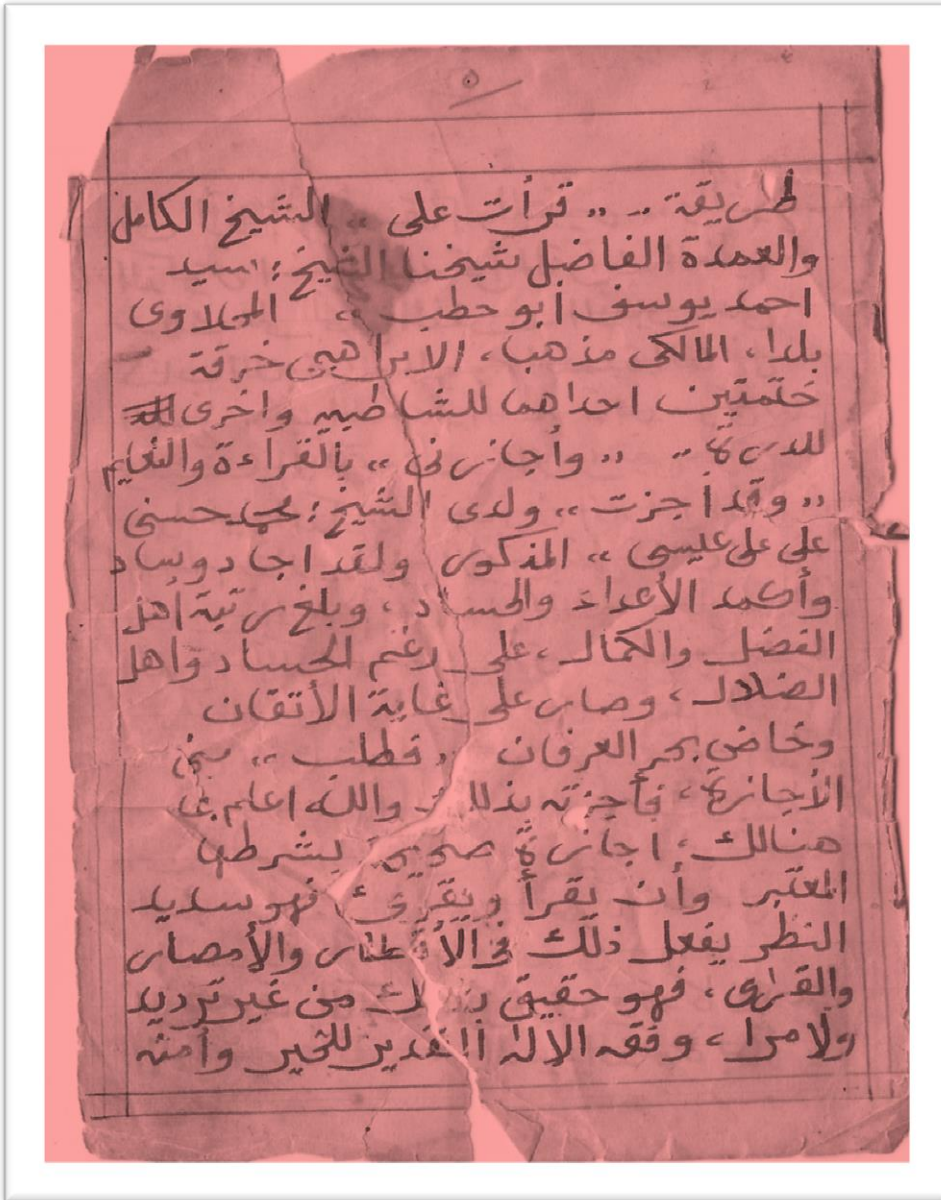 ٥
طريقة .. ,, قرأت على ,, الشيخ الكامل
والعمدة الفاضل شيخنا الشيخ : سيد
احمد يوسف ابو حطب ,, المحلاوى
بلدا، المالكى مذهبا، الابراهيمى خرقة
ختمتين احداهما للشاطبيه واخرى
للدرة .. ,, وأجازنى ,, بالقراءة والتعليم
,, وقد أجزت ,, ولدى الشيخ : محمد حسنى
على على عيسى ,, المذكور ولقد اجاد وساد
وأكمد الأعداء والحساد، وبلغ رتبة اهل
الفضل والكمال، على رغم الحساد واهل
الضلال، وصار على غاية الأتقان
وخاض بحر العرفان ,, فطلب ,, منى
الأجازة، فأجزته بذلك والله اعلم بما
هنالك، اجازة صحيحة بشرطها
المعتبر وأن يقرأ ويقرىء، فهو سديد
النظر يفعل ذلك فى الأقطار والأمصار
والقرى، فهو حقيق بذلك من غير ترديد
ولا مرا، وفقه الاله للخير وأمته